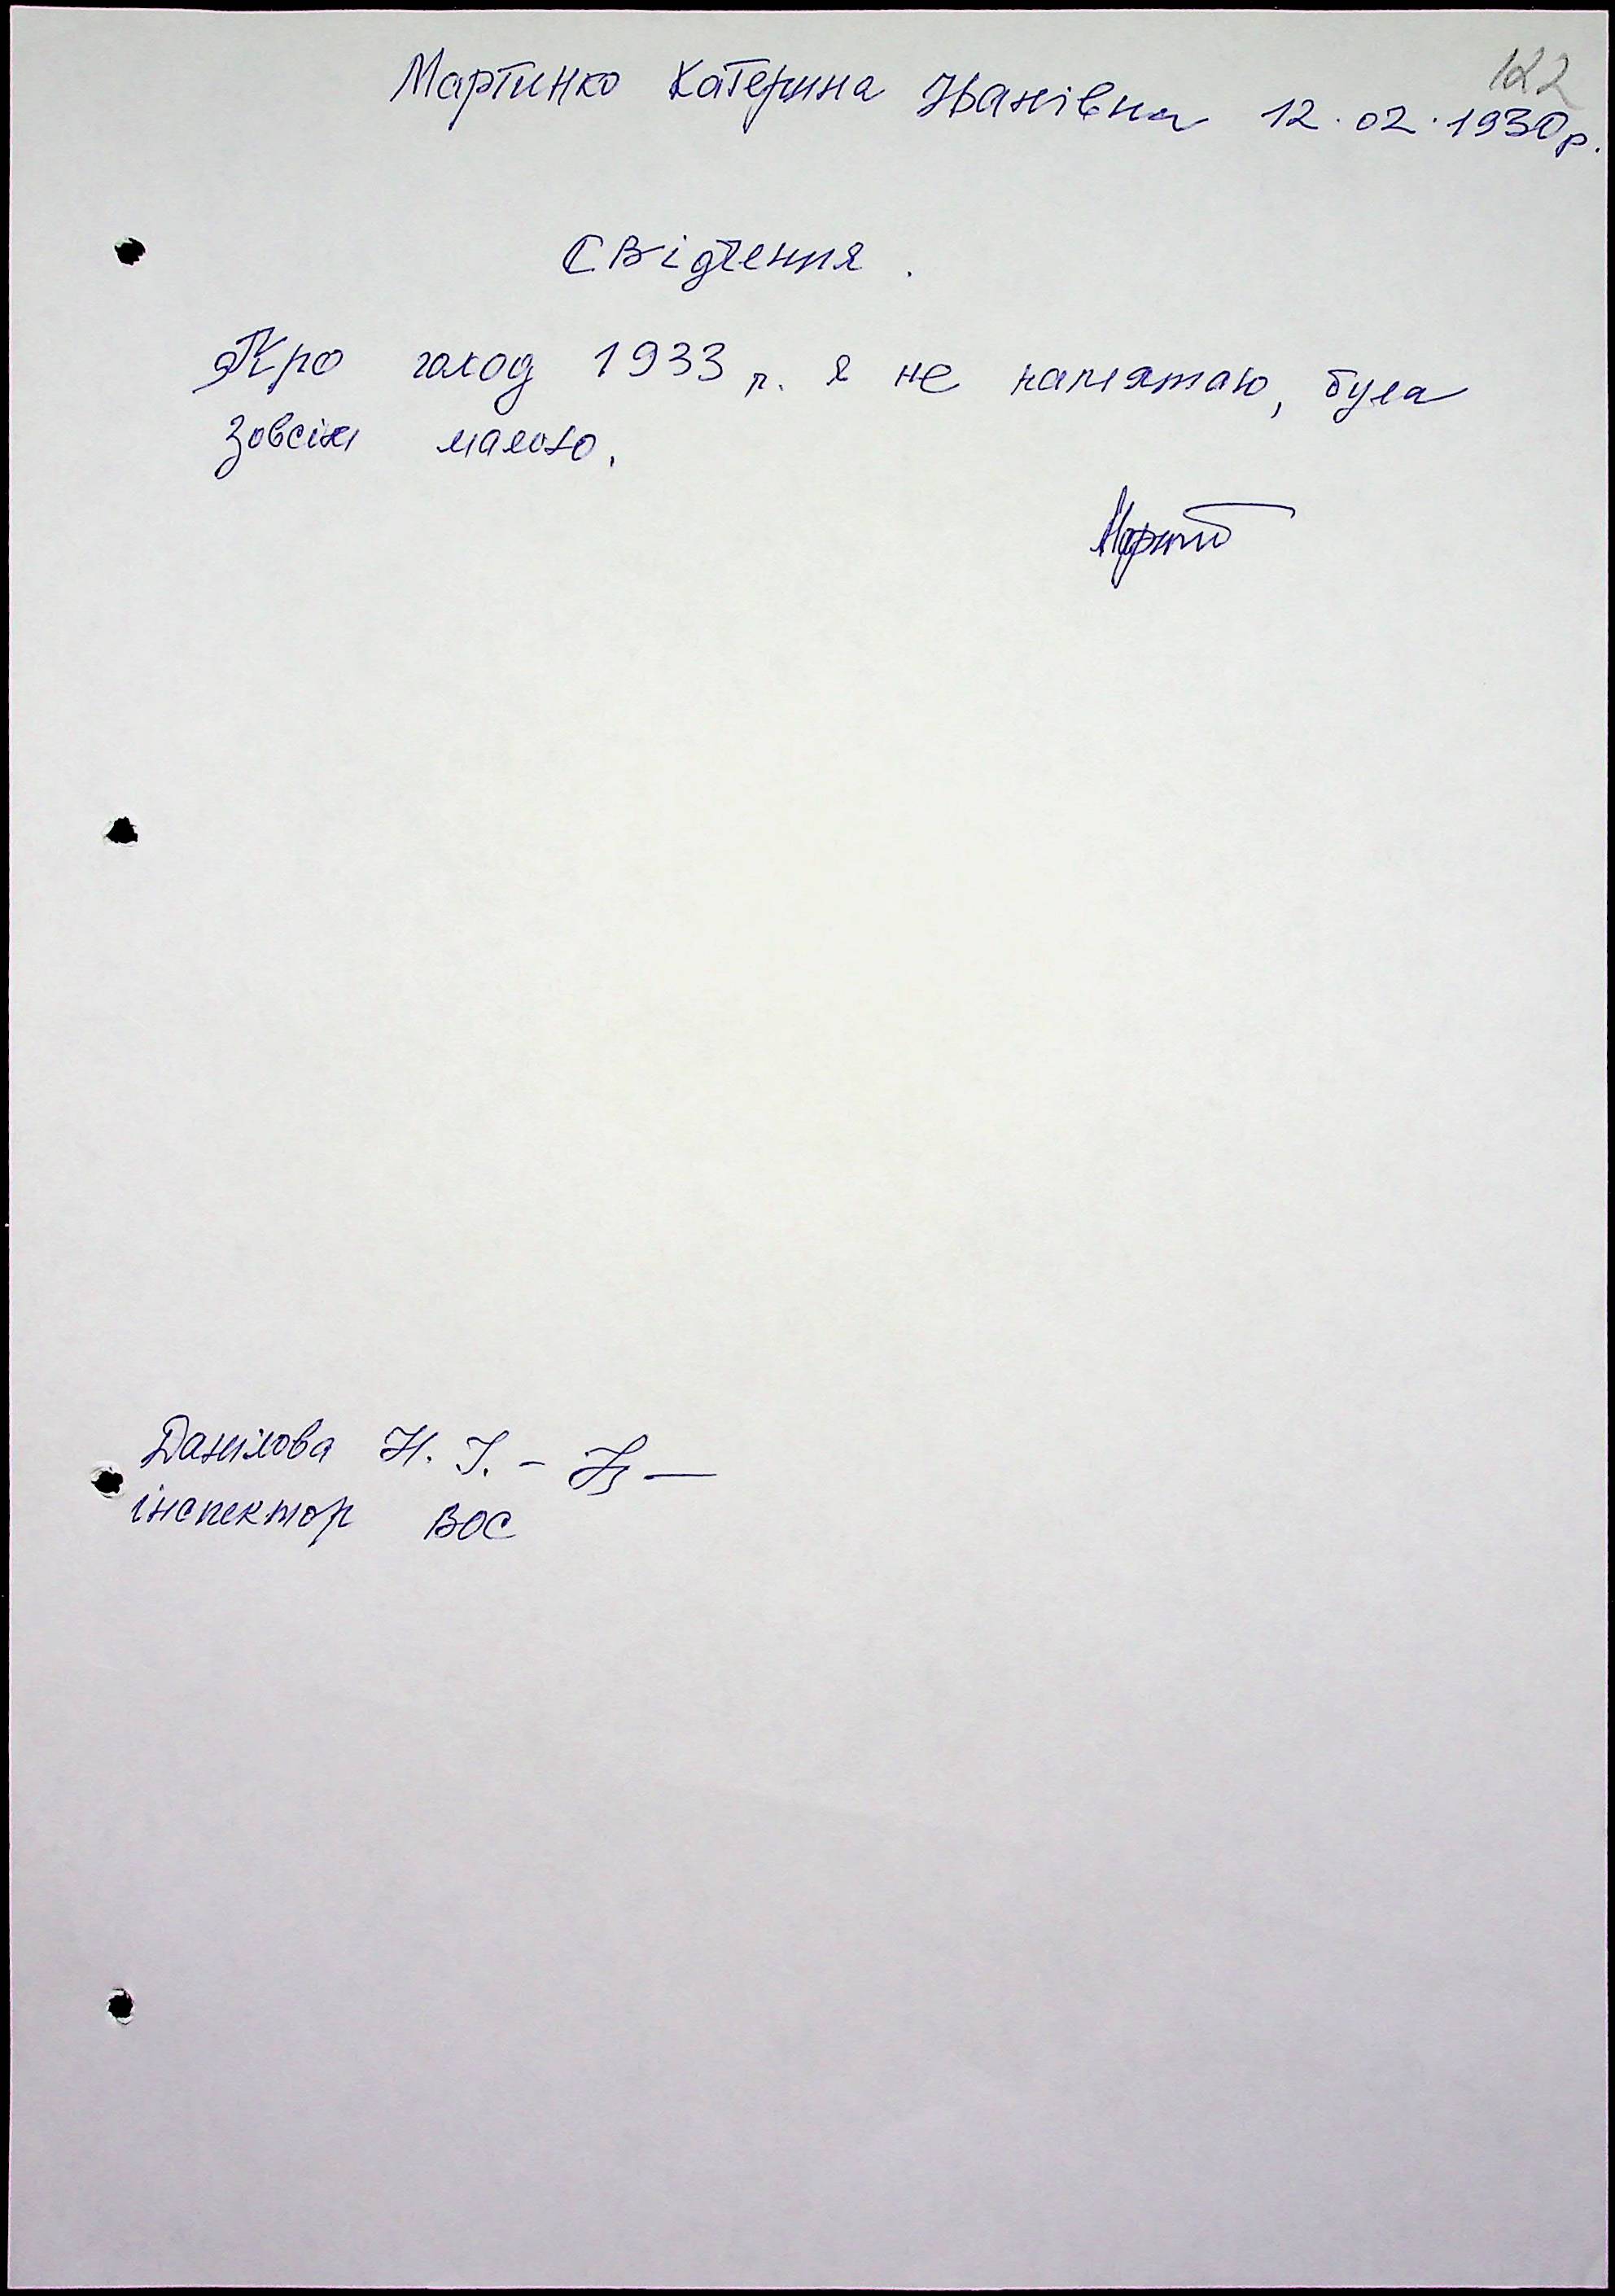 122
Мартинко Катерина Іванівна 12.02.1930р.
Свідчення.
Про голод 1933 р. я не памятаю, була
зовсім малою.
Данілова Н. І. -
інспектор ВОС